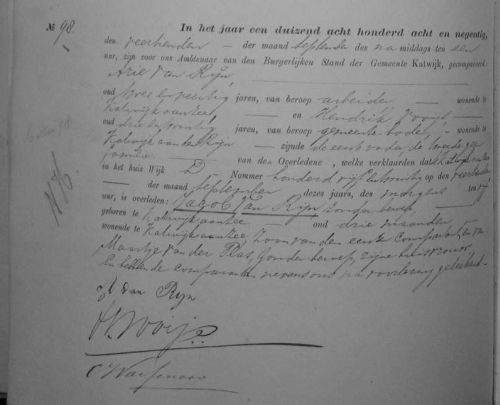 № 98. In het jaar een duizend acht honderd acht en negentig,
den veertienden der maand September des na middags ten een
ure, zijn voor ons Ambtenaar van den Burgerlijken Stand der Gemeente Katwijk, gecompareerd
Arie van Rijn
oud twee en veertig jaren, van beroep arbeider wonende te
Katwijk aan Zee en Hendrik
oud jaren, van beroep gemeentebode, wonende te
Katwijk aan den Rijn zijnde de eerste vader, de tweede geen
familie van den Overledene, welke verklaarden dat
in het huis Wijk D Nummer honderd vijf op den veertienden
der maand September dezes jaars, des morgens ten
ure, is overleden: Jacob van Rijn zonder beroep,
geboren te Katwijk aan Zee oud drie maanden
wonende te Katwijk aan Zee, zoon van den eersten comparant, en van
Maartje van der Plas, zonder beroep, zijne huisvrouw.
En hebben de comparanten nevens ons na voorlezing geteekend.
van Rijn